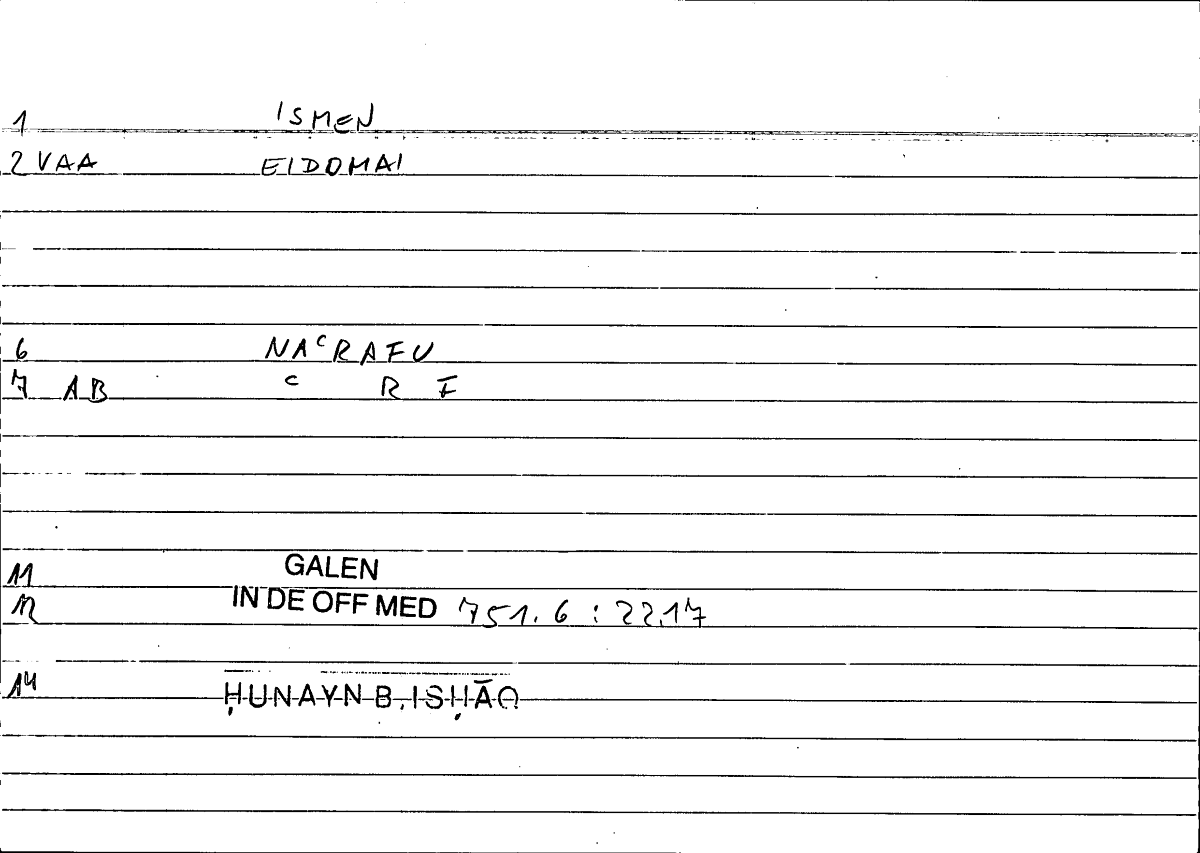 1 ISMEN
2 VAA EIDOMAI
6 NAᶜRAFU
7 AB ᶜ R F
11 GALEN
12 IN DE OFF MED 751.6 : 22.17
14 ḤUNAYN B. ISḤĀQ